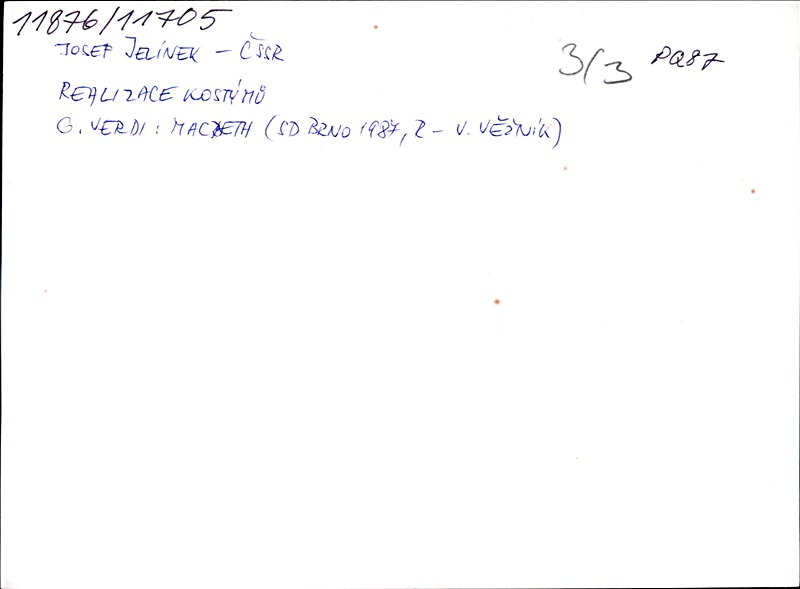 11876/11705
JOSEF JELÍNEK – ČSSR
3/3 PQ87
REALIZACE KOSTÝMŮ
G. VERDI: MACBETH (SD BRNO 1987, R – V. VĚŽNÍK)